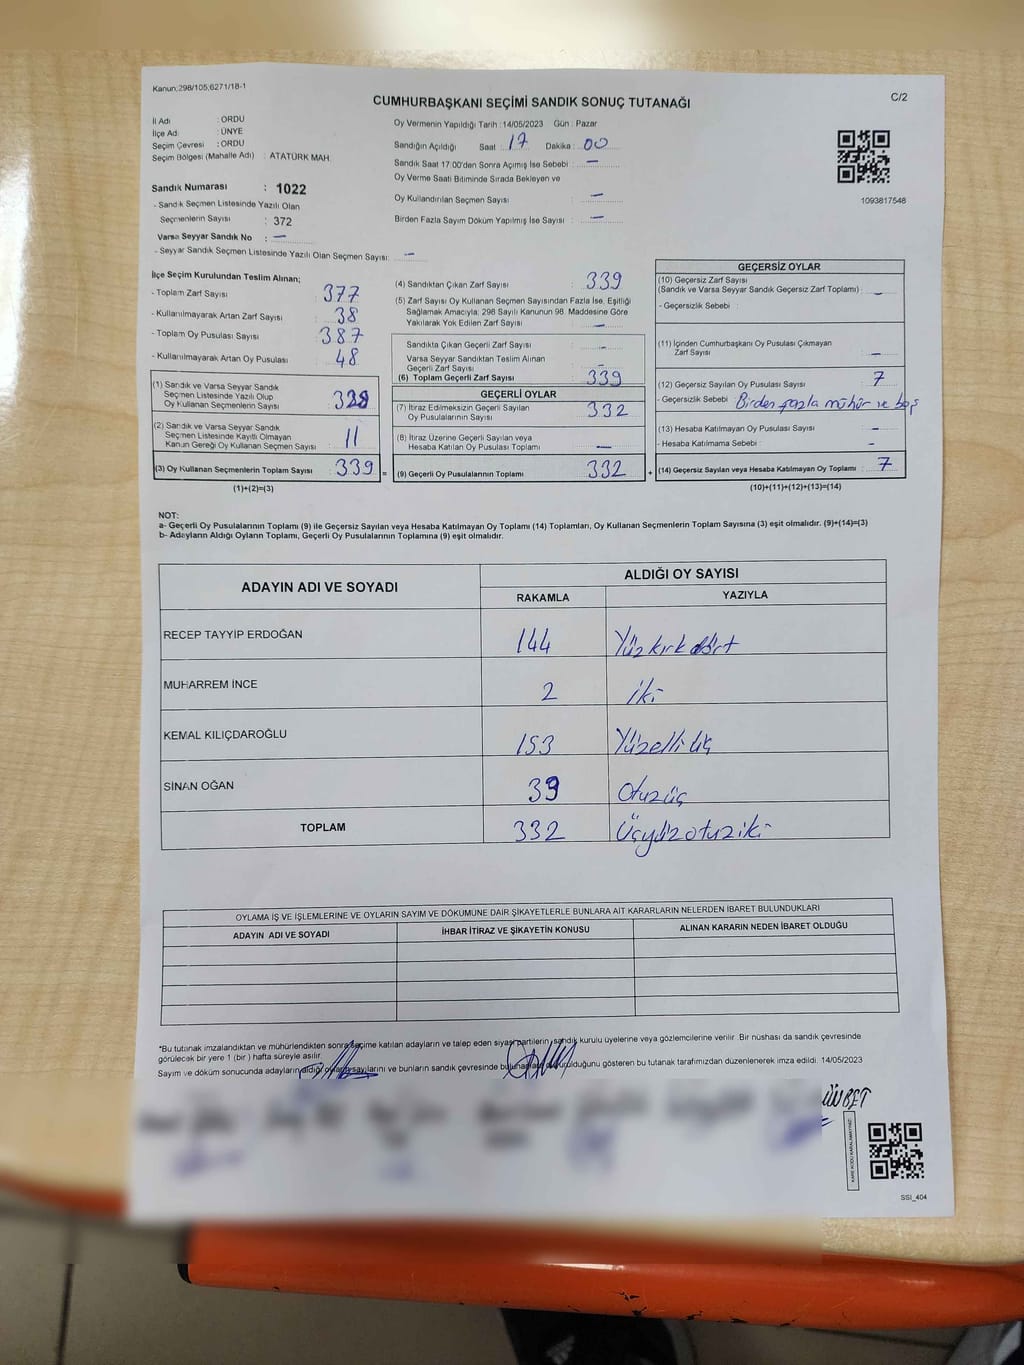 Kanun;298/105;6271/18-1
CUMHURBAŞKANI SEÇİMİ SANDIK SONUÇ TUTANAĞI
C/2
İl Adı : ORDU
İlçe Adı : ÜNYE
Seçim Çevresi : ORDU
Seçim Bölgesi (Mahalle Adı) : ATATÜRK MAH.
Sandık Numarası : 1022
- Sandık Seçmen Listesinde Yazılı Olan
Seçmenlerin Sayısı : 372
Varsa Seyyar Sandık No : —
- Seyyar Sandık Seçmen Listesinde Yazılı Olan Seçmen Sayısı: —
Oy Vermenin Yapıldığı Tarih :14/05/2023 Gün : Pazar
Sandığın Açıldığı Saat : 17 Dakika : 00
Sandık Saat 17:00'den Sonra Açılmış İse Sebebi : —
Oy Verme Saati Bitiminde Sırada Bekleyen ve
Oy Kullandırılan Seçmen Sayısı : —
Birden Fazla Sayım Döküm Yapılmış İse Sayısı : —
1093817548
İlçe Seçim Kurulundan Teslim Alınan;
- Toplam Zarf Sayısı : 377
- Kullanılmayarak Artan Zarf Sayısı : 38
- Toplam Oy Pusulası Sayısı : 387
- Kullanılmayarak Artan Oy Pusulası : 48
(1) Sandık ve Varsa Seyyar Sandık
Seçmen Listesinde Yazılı Olup
Oy Kullanan Seçmenlerin Sayısı : 328
(2) Sandık ve Varsa Seyyar Sandık
Seçmen Listesinde Kayıtlı Olmayan
Kanun Gereği Oy Kullanan Seçmen Sayısı : 11
(3) Oy Kullanan Seçmenlerin Toplam Sayısı : 339
(1)+(2)=(3)
(4) Sandıktan Çıkan Zarf Sayısı : 339
(5) Zarf Sayısı Oy Kullanan Seçmen Sayısından Fazla İse, Eşitliği
Sağlamak Amacıyla; 298 Sayılı Kanunun 98. Maddesine Göre
Yakılarak Yok Edilen Zarf Sayısı : —
Sandıkta Çıkan Geçerli Zarf Sayısı : -
Varsa Seyyar Sandıktan Teslim Alınan
Geçerli Zarf Sayısı : —
(6) Toplam Geçerli Zarf Sayısı : 339
GEÇERLİ OYLAR
(7) İtiraz Edilmeksizin Geçerli Sayılan
Oy Pusulalarının Sayısı : 332
(8) İtiraz Üzerine Geçerli Sayılan veya
Hesaba Katılan Oy Pusulası Toplamı : —
= (9) Geçerli Oy Pusulalarının Toplamı : 332 +
GEÇERSİZ OYLAR
(10) Geçersiz Zarf Sayısı
(Sandık ve Varsa Seyyar Sandık Geçersiz Zarf Toplamı) : —
- Geçersizlik Sebebi :
(11) İçinden Cumhurbaşkanı Oy Pusulası Çıkmayan
Zarf Sayısı : —
(12) Geçersiz Sayılan Oy Pusulası Sayısı : 7
- Geçersizlik Sebebi : Birden fazla mühür ve boş
(13) Hesaba Katılmayan Oy Pusulası Sayısı : -
- Hesaba Katılmama Sebebi : -
(14) Geçersiz Sayılan veya Hesaba Katılmayan Oy Toplamı : 7
(10)+(11)+(12)+(13)=(14)
NOT:
a- Geçerli Oy Pusulalarının Toplamı (9) ile Geçersiz Sayılan veya Hesaba Katılmayan Oy Toplamı (14) Toplamları, Oy Kullanan Seçmenlerin Toplam Sayısına (3) eşit olmalıdır. (9)+(14)=(3)
b- Adayların Aldığı Oyların Toplamı, Geçerli Oy Pusulalarının Toplamına (9) eşit olmalıdır.
ADAYIN ADI VE SOYADI ALDIĞI OY SAYISI
RAKAMLA YAZIYLA
RECEP TAYYİP ERDOĞAN 144 Yüzkırkdört
MUHARREM İNCE 2 iki
KEMAL KILIÇDAROĞLU 153 Yüzelli üç
SİNAN OĞAN 33 Otuzüç
TOPLAM 332 Üçyüzotuziki
OYLAMA İŞ VE İŞLEMLERİNE VE OYLARIN SAYIM VE DÖKÜMÜNE DAİR ŞİKAYETLERLE BUNLARA AİT KARARLARIN NELERDEN İBARET BULUNDUKLARI
ADAYIN ADI VE SOYADI İHBAR İTİRAZ VE ŞİKAYETİN KONUSU ALINAN KARARIN NEDEN İBARET OLDUĞU
*Bu tutanak imzalandıktan ve mühürlendikten sonra seçime katılan adayların ve talep eden siyasi partilerin, sandık kurulu üyelerine veya gözlemcilerine verilir. Bir nüshası da sandık çevresinde
görülecek bir yere 1 (bir) hafta süreyle asılır.
Sayım ve döküm sonucunda adayların aldığı oyların sayılarını ve bunların sandık çevresinde olduğunu gösteren bu tutanak tarafımızdan düzenlenerek imza edildi. 14/05/2023
KARE KODU KARALAMAYINIZ!
SSI_404